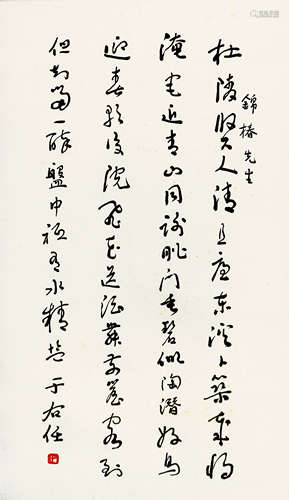 錦椿先生
杜陵賢人清且廉東溪卜築歲將
淹宅近青山同謝朓門垂碧似陶潛好鳥
迎春歌後院飛花送酒舞前簷客到
但知留一醉盤中祗有水精鹽 于右任